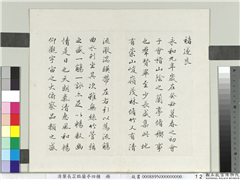 褚遂良
永和九年歲在癸丑暮春之初會
于會稽山陰之蘭亭脩禊事
也羣賢畢至少長咸集此地
有崇山峻領茂林脩竹又有清
流激湍暎帶左右引以為流觴
曲水列坐其次雖無絲竹管弦
之盛一觴一詠亦足以暢敘幽
情是日也天朗氣清惠風和暢
仰觀宇宙之大俯察品類之盛